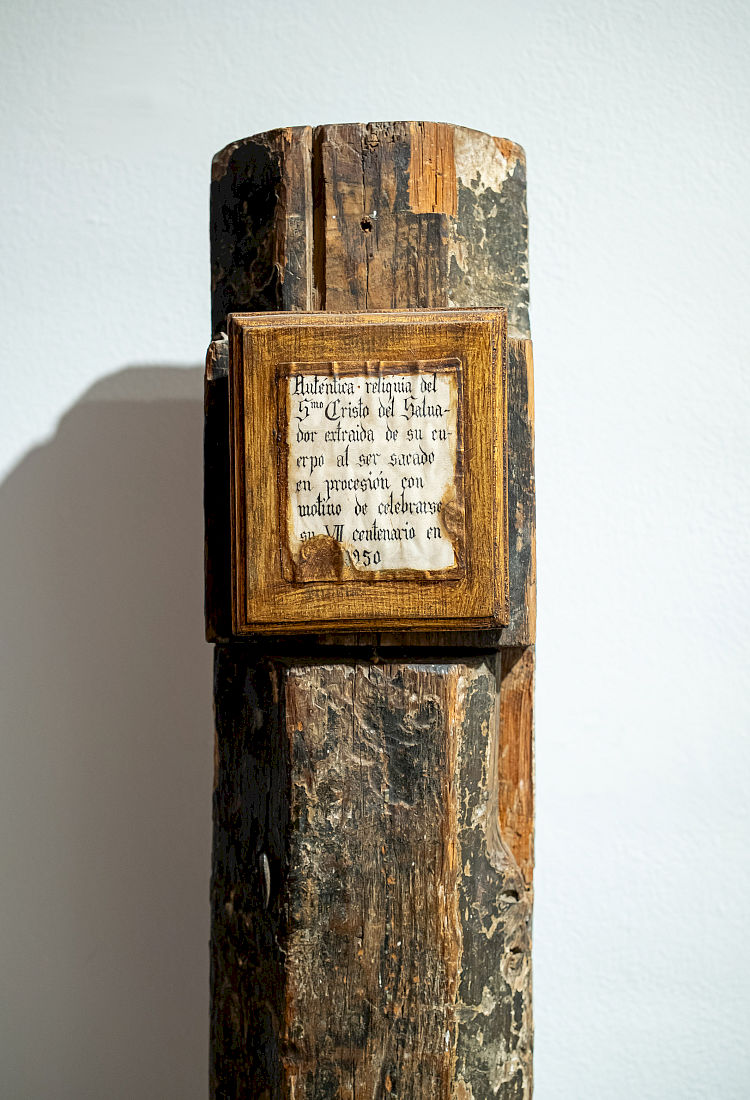 Auténtica · reliquia del
Sᵐᵒ Cristo del Salva-
dor extraida de su cu-
erpo al ser sacado
en procesión con
motivo de celebrarse
su VII centenario en
1950